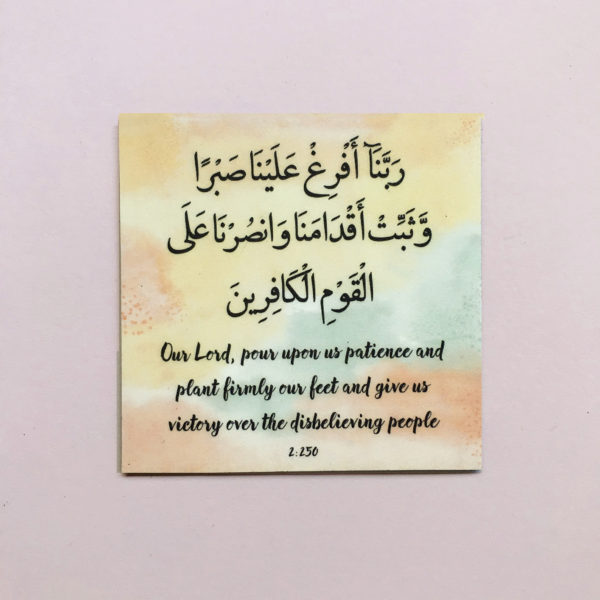 رَبَّنَآ أَفْرِغْ عَلَيْنَا صَبْرًا
وَّثَبِّتْ أَقْدَامَنَا وَانصُرْنَا عَلَى
الْقَوْمِ الْكَافِرِينَ
Our Lord, pour upon us patience and
plant firmly our feet and give us
victory over the disbelieving people
2:250